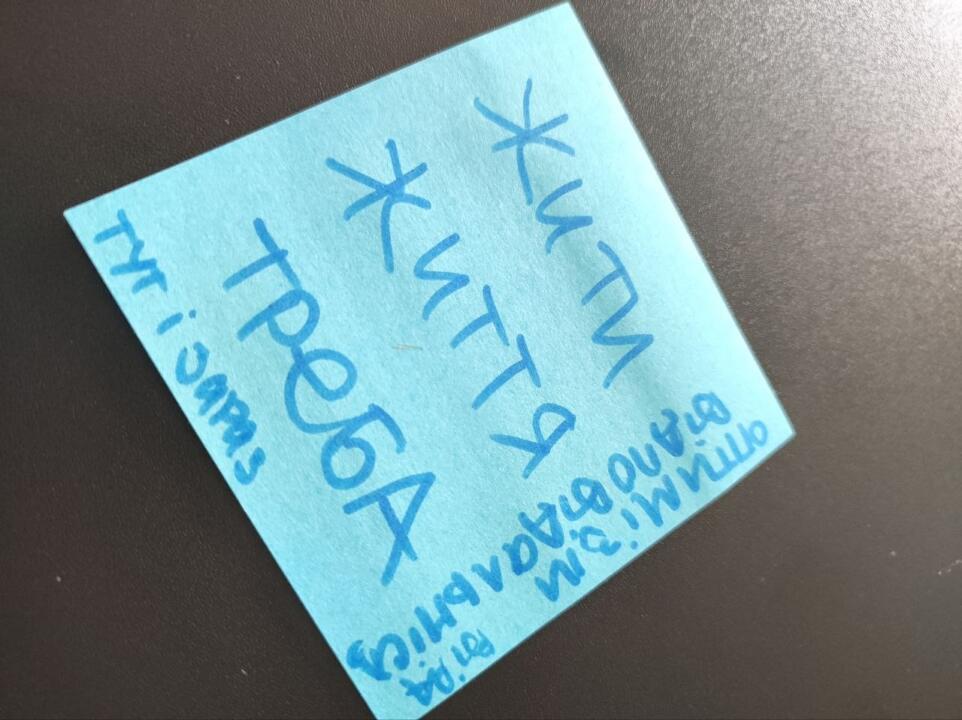 ЖИТИ
ЖИТТЯ
ТРеБА
тут і зараз
оптимізм
відповідальність
віра